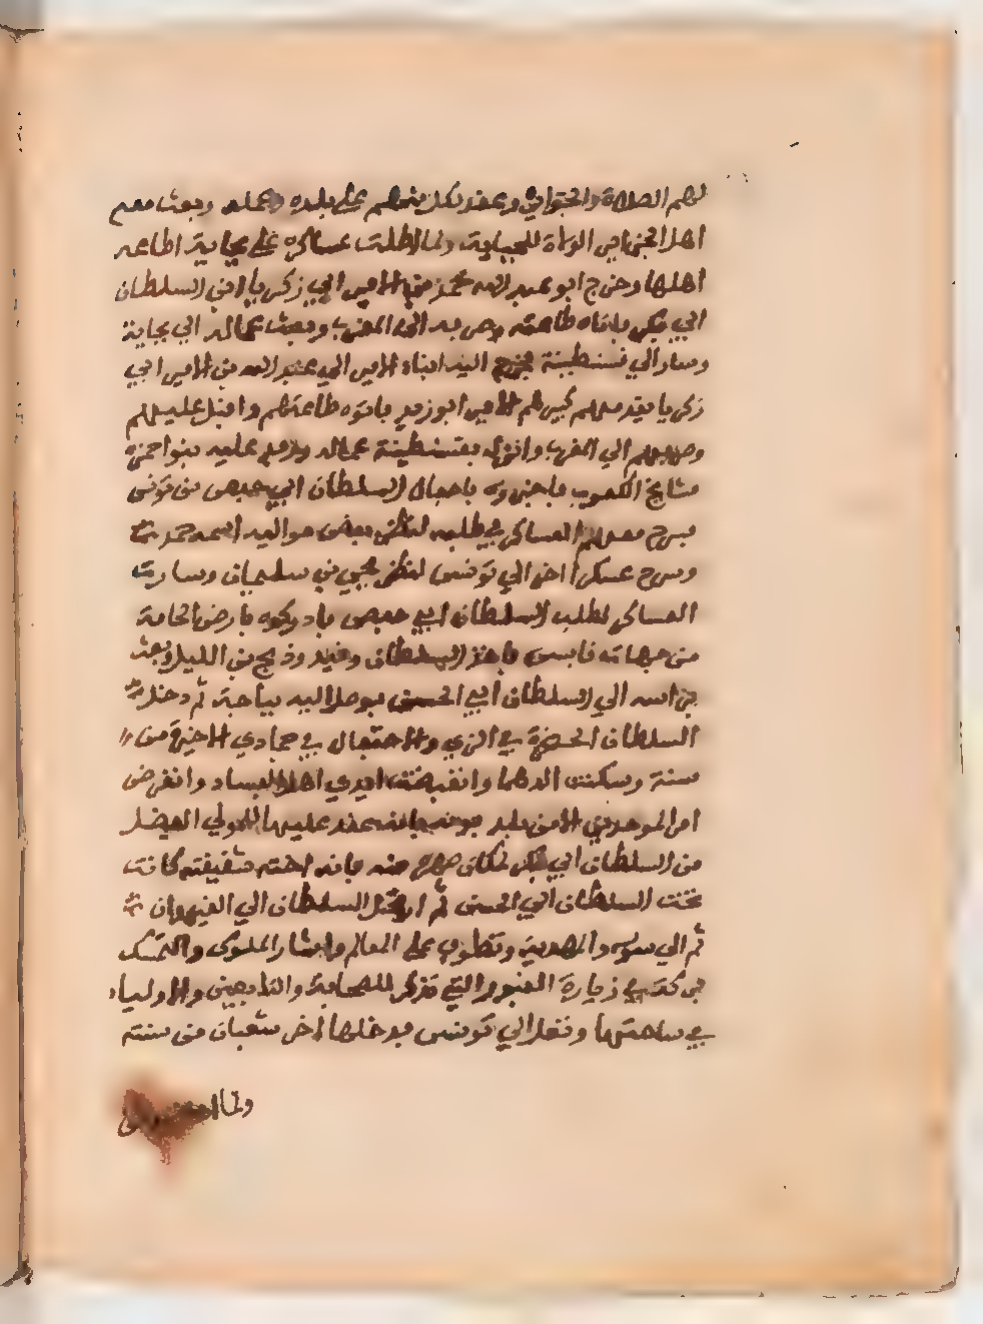 لهم الصلاة والجوائز وعقد لكل منهم على بلده وعمله وبعث معهم
اهل الخراج من الولاة للجباية ولما اطلت عساكره على بجاية اطاعه
اهلها وخرج ابو عبد الله محمد بن الامير ابي زكريا ابن السلطان
ابي بكر باتاه طاعته وصربه الى المغرب وبعث عماله الى بجاية
وسار الي قسنطينة فخرج اليه ابناء الامير ابي عبد الله بن الامير ابي
زكريا يقدمهم كبيرهم الامير ابو زيد باتوه طاعتهم واقبل عليهم
وصربهم الي المغرب وانزل بقسنطينة عماله وقدم عليه بنو حمزة
مشايخ الكعوب باخبروه باجفال السلطان ابي حفص من تونس
بسرح معهم العساكر في طلبه لنظر بعض مواليه اسمه حمو
وسرح عسكرا اخر الي تونس لنظر يحيى بن سليمان وسارت
العساكر لطلب السلطان ابي حفص بادركوه بارض الحامة
من جهات قابس باخذ السلطان وقيد وذبح من الليل وبعث
براسه الي السلطان ابي الحسن بوصل اليه بباجة ثم دخل
السلطان الحضرة في الزي والاحتفال في جمادي الاخيرة من
سنة وسكنت الدهما وانقبضت ايدي اهل الفساد وانقرض
امر الموحدين الا من بلد بونة بانه عقد عليها للمولي الفضل
بن السلطان ابي بكر لمكان صهره منه بانه اخته شقيقته كانت
تحت السلطان ابي الحسن ثم ارتحل السلطان الي القيروان
ثم الي سوسه والمهدية وتطوف على المعالم واثار الملوك والتمسك
بركة في زيارة القبور التي تذكر للصحابة والتابعين والاولياء
في ساحتها وقفل الي تونس بدخلها اخر شعبان من سنة
ولما